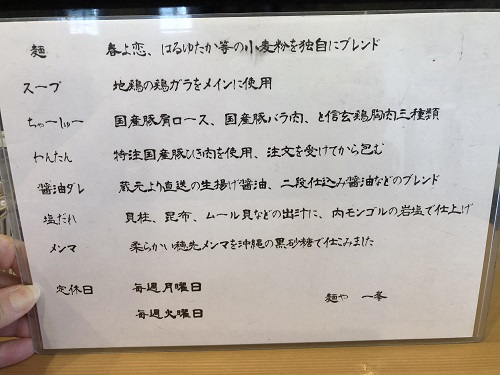 麺　春よ恋、はるゆたか等の小麦粉を独自にブレンド
スープ　地鶏の鶏ガラをメインに使用
ちゃーしゅー　国産豚肩ロース、国産豚バラ肉、と信玄鶏胸肉三種類
わんたん　特注国産豚ひき肉を使用、注文を受けてから包む
醤油ダレ　蔵元より直送の生揚げ醤油、二段仕込み醤油などのブレンド
塩だれ　貝柱、昆布、ムール貝などの出汁に、内モンゴルの岩塩で仕上げ
メンマ　柔らかい穂先メンマを沖縄の黒砂糖で仕こみました
定休日　毎週月曜日
毎週火曜日
麺や　一峯